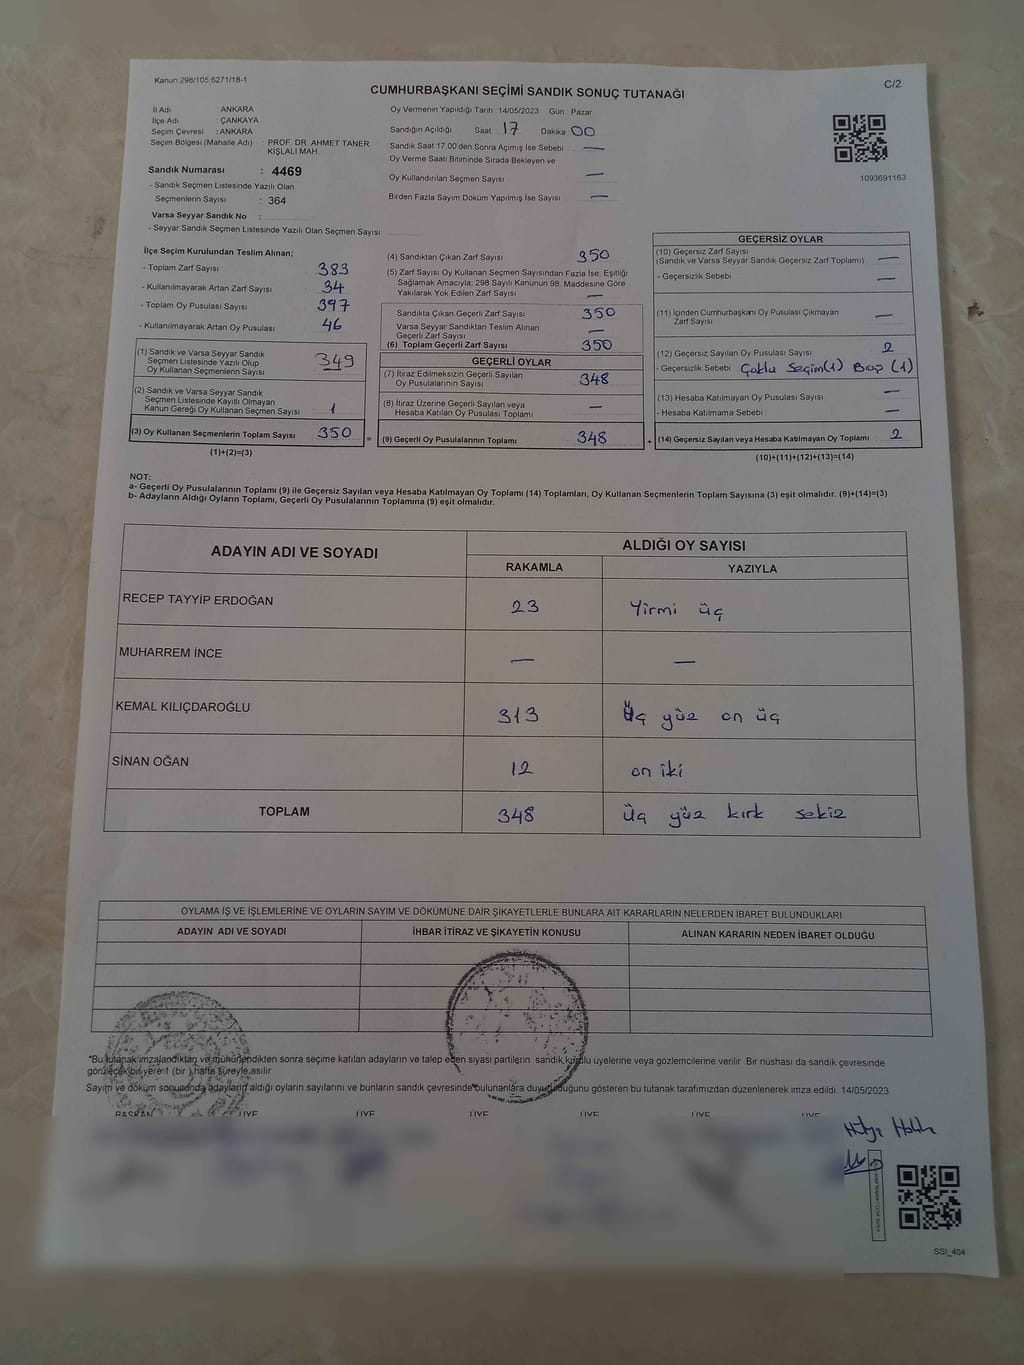 Kanun:298/105,6271/18-1
C/2
CUMHURBAŞKANI SEÇİMİ SANDIK SONUÇ TUTANAĞI
İl Adı : ANKARA
İlçe Adı : ÇANKAYA
Seçim Çevresi : ANKARA
Seçim Bölgesi (Mahalle Adı) : PROF. DR. AHMET TANER KIŞLALI MAH.
Sandık Numarası : 4469
- Sandık Seçmen Listesinde Yazılı Olan
Seçmenlerin Sayısı : 364
Varsa Seyyar Sandık No :
- Seyyar Sandık Seçmen Listesinde Yazılı Olan Seçmen Sayısı:
Oy Vermenin Yapıldığı Tarih 14/05/2023 Gün Pazar
Sandığın Açıldığı Saat 17 Dakika 00
Sandık Saat 17.00'den Sonra Açımış İse Sebebi —
Oy Verme Saati Bitiminde Sırada Bekleyen ve
Oy Kullandırılan Seçmen Sayısı —
Birden Fazla Sayım Döküm Yapılmış İse Sayısı —
1093691163
İlçe Seçim Kurulundan Teslim Alınan;
- Toplam Zarf Sayısı 383
- Kullanılmayarak Artan Zarf Sayısı 34
- Toplam Oy Pusulası Sayısı 397
- Kullanılmayarak Artan Oy Pusulası 46
(1) Sandık ve Varsa Seyyar Sandık
Seçmen Listesinde Yazılı Olup
Oy Kullanan Seçmenlerin Sayısı 349
(2) Sandık ve Varsa Seyyar Sandık
Seçmen Listesinde Kayıtlı Olmayan
Kanun Gereği Oy Kullanan Seçmen Sayısı 1
(3) Oy Kullanan Seçmenlerin Toplam Sayısı 350 =
(1)+(2)=(3)
(4) Sandıktan Çıkan Zarf Sayısı 350
(5) Zarf Sayısı Oy Kullanan Seçmen Sayısından Fazla İse, Eşitliği
Sağlamak Amacıyla; 298 Sayılı Kanunun 98. Maddesine Göre
Yakılarak Yok Edilen Zarf Sayısı —
Sandıkla Çıkan Geçerli Zarf Sayısı 350
Varsa Seyyar Sandıktan Teslim Alınan
Geçerli Zarf Sayısı —
(6) Toplam Geçerli Zarf Sayısı 350
GEÇERLİ OYLAR
(7) İtiraz Edilmeksizin Geçerli Sayılan
Oy Pusulalarının Sayısı 348
(8) İtiraz Üzerine Geçerli Sayılan veya
Hesaba Katılan Oy Pusulası Toplamı —
(9) Geçerli Oy Pusulalarının Toplamı 348 +
GEÇERSİZ OYLAR
(10) Geçersiz Zarf Sayısı
(Sandık ve Varsa Seyyar Sandık Geçersiz Zarf Toplamı) —
- Geçersizlik Sebebi —
(11) İçinden Cumhurbaşkanı Oy Pusulası Çıkmayan
Zarf Sayısı —
(12) Geçersiz Sayılan Oy Pusulası Sayısı 2
- Geçersizlik Sebebi Çoklu Seçim(1) Boş (1)
(13) Hesaba Katılmayan Oy Pusulası Sayısı —
- Hesaba Katılmama Sebebi —
(14) Geçersiz Sayılan veya Hesaba Katılmayan Oy Toplamı 2
(10)+(11)+(12)+(13)=(14)
NOT:
a- Geçerli Oy Pusulalarının Toplamı (9) ile Geçersiz Sayılan veya Hesaba Katılmayan Oy Toplamı (14) Toplamları, Oy Kullanan Seçmenlerin Toplam Sayısına (3) eşit olmalıdır. (9)+(14)=(3)
b- Adayların Aldığı Oyların Toplamı, Geçerli Oy Pusulalarının Toplamına (9) eşit olmalıdır.
ADAYIN ADI VE SOYADI
ALDIĞI OY SAYISI
RAKAMLA YAZIYLA
RECEP TAYYİP ERDOĞAN 23 Yirmi üç
MUHARREM İNCE — —
KEMAL KILIÇDAROĞLU 313 Üç yüz on üç
SİNAN OĞAN 12 on iki
TOPLAM 348 Üç yüz kırk sekiz
OYLAMA İŞ VE İŞLEMLERİNE VE OYLARIN SAYIM VE DÖKÜMÜNE DAİR ŞİKAYETLERLE BUNLARA AİT KARARLARIN NELERDEN İBARET BULUNDUKLARI
ADAYIN ADI VE SOYADI İHBAR İTİRAZ VE ŞİKAYETİN KONUSU ALINAN KARARIN NEDEN İBARET OLDUĞU
*Bu tutanak imzalandıktan ve mühürlendikten sonra seçime katılan adayların ve talep eden siyasi partilerin sandık kurulu üyelerine veya gözlemcilerine verilir. Bir nüshası da sandık çevresinde
görülecek bir yere 1 (bir) hafta süreyle asılır
Sayım ve döküm sonucunda adayların aldığı oyların sayılarını ve bunların sandık çevresinde bulunanlara duyurulduğunu gösteren bu tutanak tarafımızdan düzenlenerek imza edildi. 14/05/2023
BAŞKAN ÜYE ÜYE ÜYE ÜYE ÜYE ÜYE
SSI_404